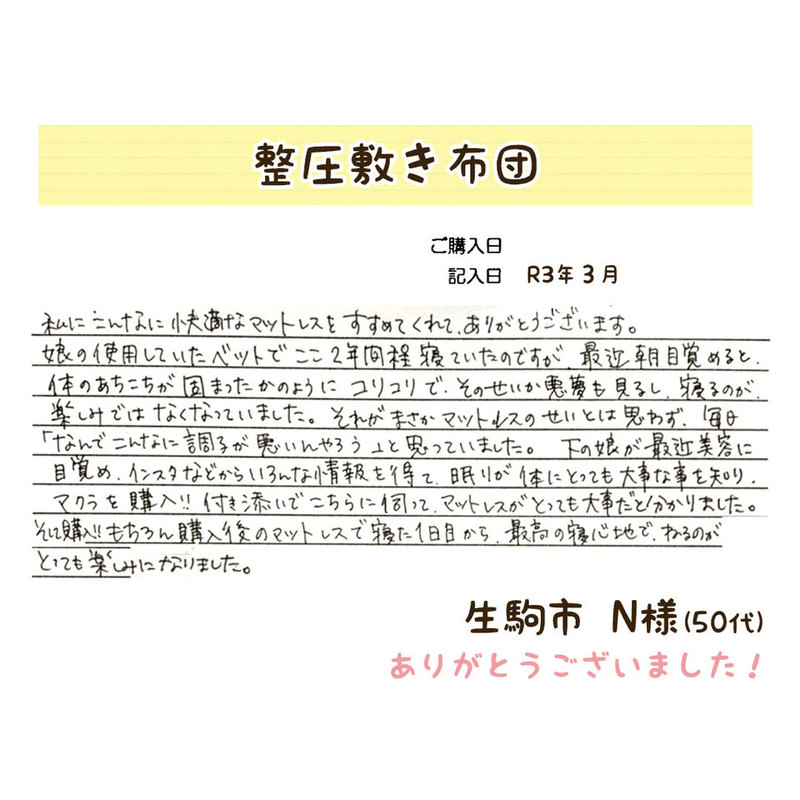 整圧敷き布団
ご購入日
記入日 R3年3月
私にこんなに快適なマットレスをすすめてくれて、ありがとうございます。
娘の使用していたベットでここ2年間程寝ていたのですが、最近朝目覚めると、
体のあちこちが固まったかのようにコリコリで、そのせいか悪夢も見るし、寝るのが、
楽しみではなくなっていました。それがまさかマットレスのせいとは思わず、毎日
「なんでこんなに調子が悪いんやろう」と思っていました。下の娘が最近美容に
目覚め、インスタなどからいろんな情報を得て、眠りが体にとっても大事な事を知り、
マクラを購入!! 付き添いでこちらに伺って、マットレスがとっても大事だと分かりました。
そして購入!! もちろん購入後のマットレスで寝た1日目から、最高の寝心地で、ねるのが
とっても楽しみになりました。
生駒市 N様(50代)
ありがとうございました!